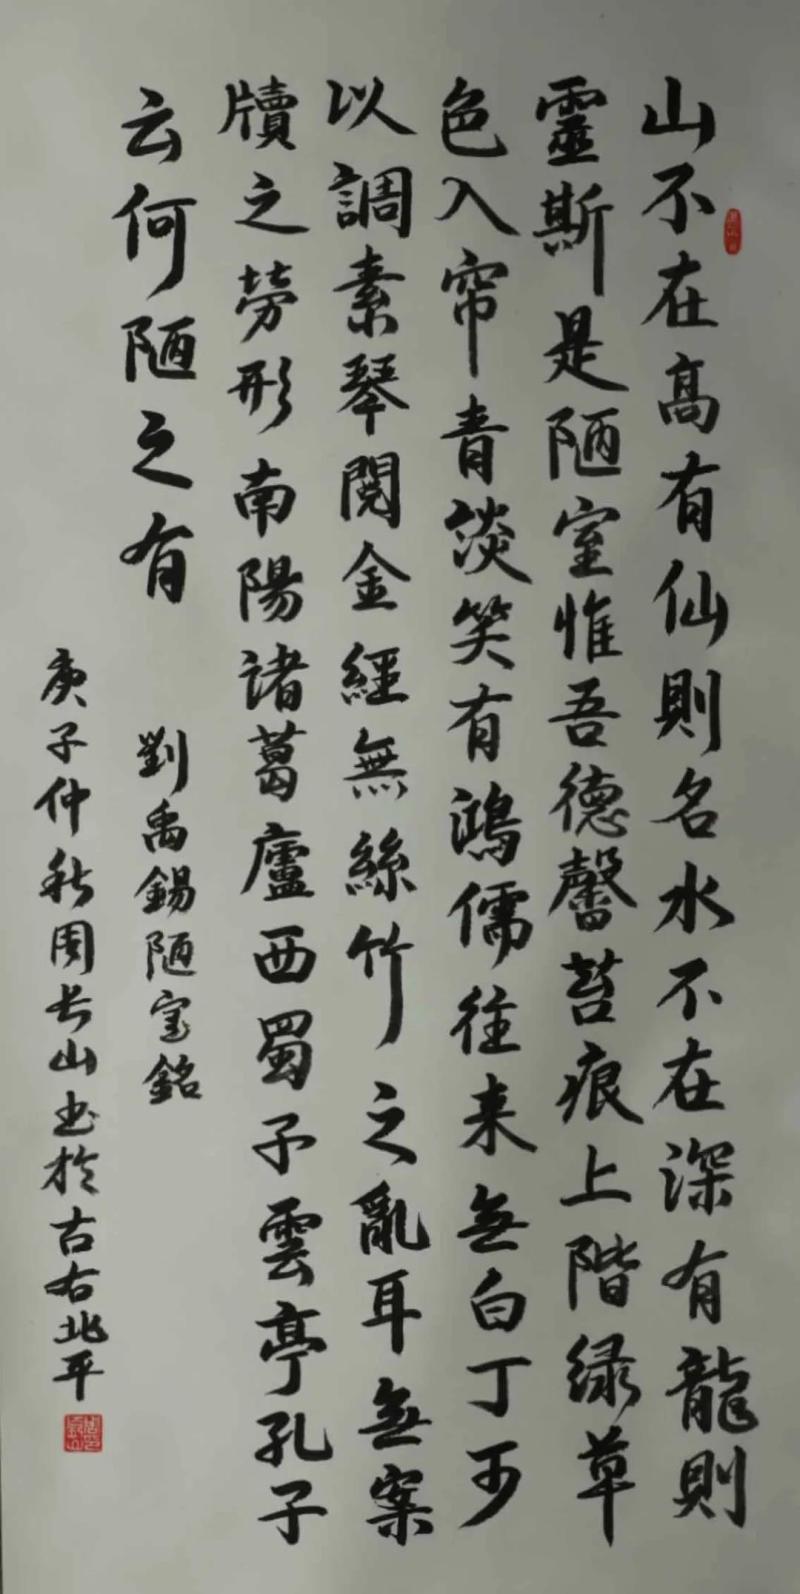 山不在高有仙則名水不在深有龍則
靈斯是陋室惟吾德馨苔痕上階绿草
色入帘青談笑有鴻儒往来無白丁可
以調素琴閱金經無絲竹之亂耳無案
牘之勞形南陽諸葛廬西蜀子雲亭孔子
云何陋之有
劉禹錫陋室銘
庚子仲秋周长山书於古右北平